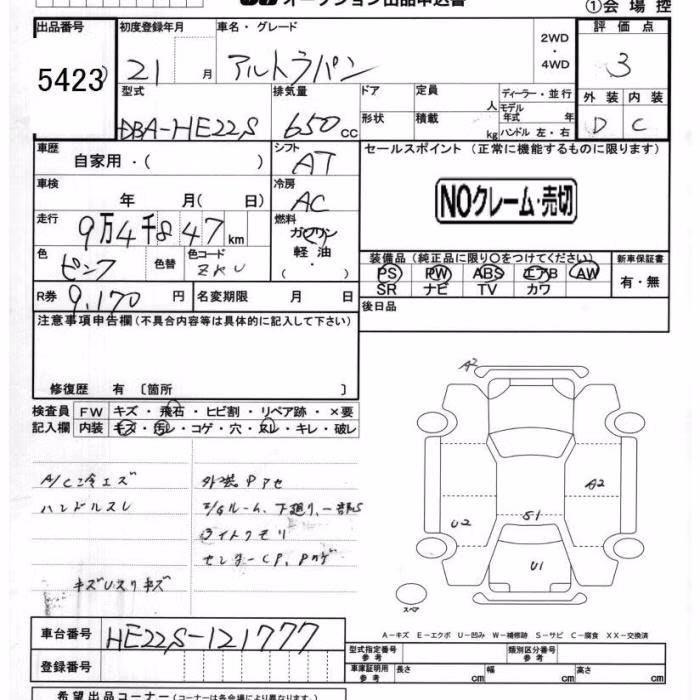 オークション出品申込書
①会場控
出品番号 初度登録年月 車名・グレード 2WD ・ 4WD 評価点
5423 21 月 アルトラパン 3
型式 排気量 ドア 定員 人 ディーラー・並行 外装 内装
DBA-HE22S 650 cc 形状 積載 kg モデル年式 年 D C
ハンドル 左・右
車歴 自家用・( ) シフト AT セールスポイント (正常に機能するものに限ります)
車検 年 月( 日) 冷房 AC NOクレーム・売切
走行 9万4千847 km 燃料 ガソリン
軽油 ・ ( )
色 ピンク 色替 色コード ZKU
装備品(純正品に限り○をつけてください) 新車保証書
PS PW ABS エアB AW 有・無
SR ナビ TV カワ
R券 9,170 円 名変期限 月 日 後日品
注意事項申告欄(不具合内容等は具体的に記入して下さい)
修復歴 有 〔箇所 〕
検査員 FW キズ・飛石・ヒビ割・リペア跡・×要
記入欄 内装 キズ・汚レ・コゲ・穴・スレ・キレ・破レ
A/C冷エズ 外装Pアセ
ハンドルスレ E/Gルーム、下廻り、一部S
ライトクモリ
センターCP、Pカゲ
キズUスリキズ
A2
A2
U2
S1
U1
スペア
A-キズ E-エクボ U-凹み W-補修跡 S-サビ C-腐食 XX-交換済
車台番号 HE22S-121777
型式指定番号 参考 類別区分番号 参考
登録番号
車庫証明用 参考 長さ cm 幅 cm 高さ cm
希望出品コーナー(コーナーは各会場により異なります。)